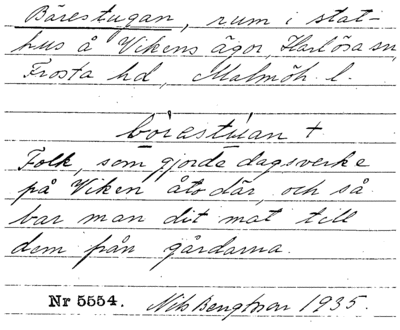 Bärestugan, rum i stat-
hus å Vikens ägor, Harlösa sn,
Frosta hd, Malmöh. l.
bö̀restúan +
Folk, som gjorde dagsverke
på Viken åto där, och så
bar man dit mat till
dem från gårdarna.
Nr 5554. Nils Bengtson 1935.